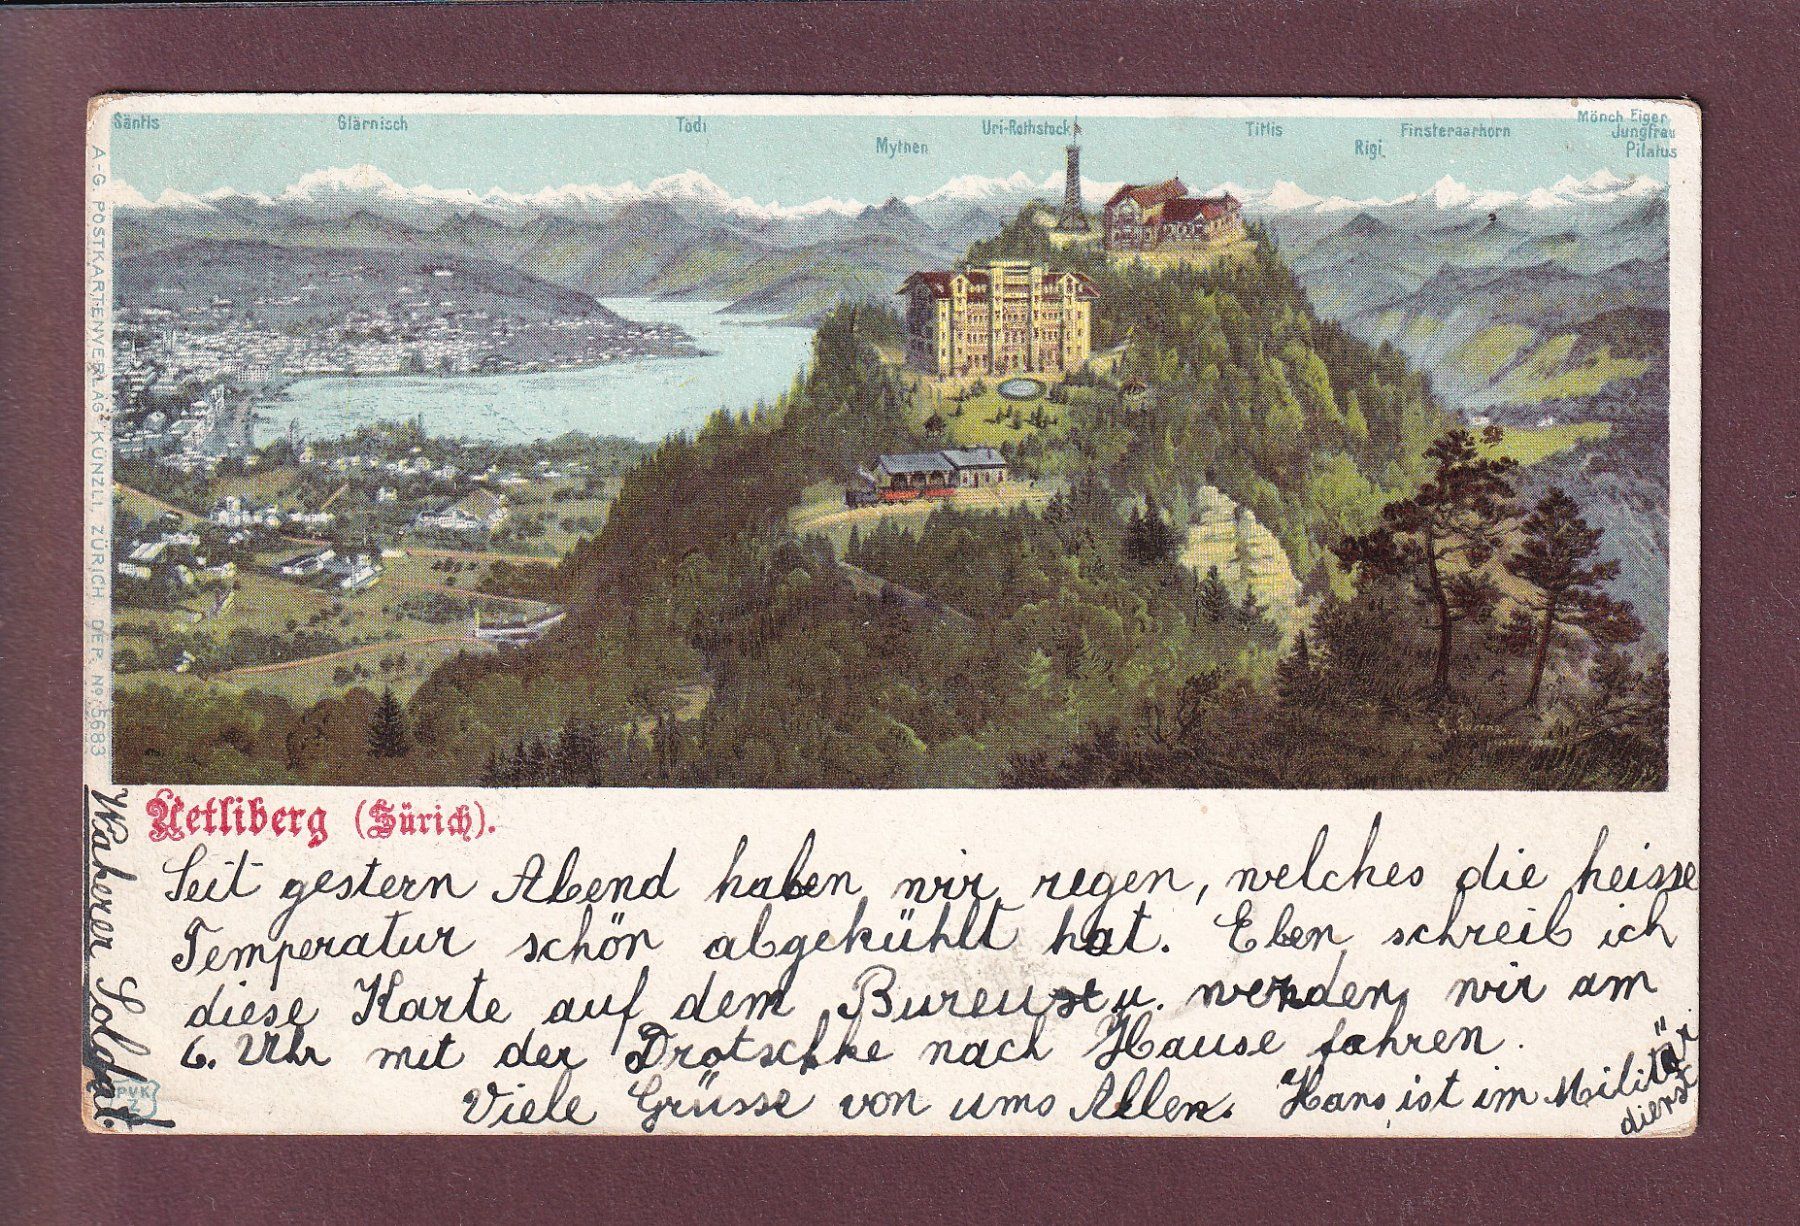 Säntis
Glärnisch
Tödi
Mythen
Uri-Rothstock
Titlis
Rigi
Finsteraarhorn
Mönch Eiger
Jungfrau
Pilatus
A-G. POSTKARTENVERLAG KÜNZLI, ZÜRICH. DEP. No. 5683
Uetliberg (Zürich).
Seit gestern Abend haben wir regen, welches die heisse
Temperatur schön abgekühlt hat. Eben schreib ich
diese Karte auf dem Bureu u. werden wir am
6. Uhr mit der Drotschke nach Hause fahren.
Viele Grüsse von uns Allen. Hans ist im Militär
dienst
Waherer Soldat.
PVK
Z